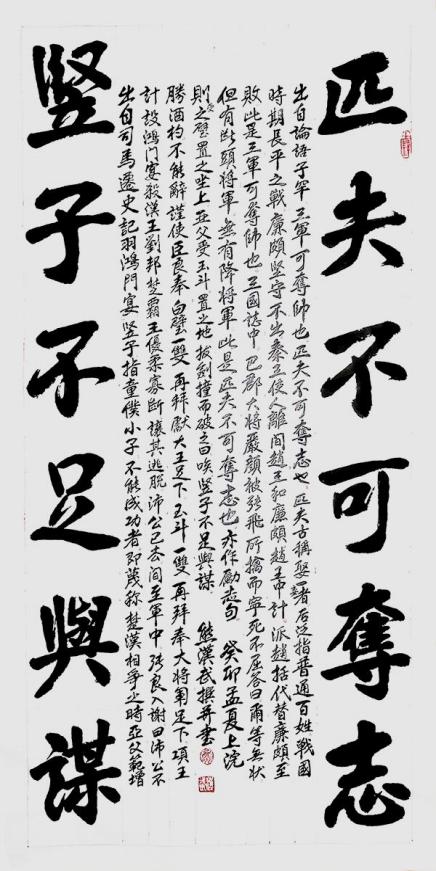 匹夫不可奪志
出自論語子罕三軍可奪帥也匹夫不可奪志也匹夫古稱娶一者后泛指普通百姓戰國
時期長平之戰廉頗堅守不出秦王使人離間趙王和廉頗趙王中計派趙括代替廉頗至
敗此是三軍可奪帥也三國誌中巴郡大將嚴顏被張飛所擒而寧死不屈答曰爾等無狀
但有斷頭將軍無有降將軍此是匹夫不可奪志也亦作勵志句 癸卯孟夏上浣
豎子不足與謀
出自司馬遷史記羽鴻門宴豎子指童僕小子不能成功者即蔑称楚漢相爭之時亞父範增
計設鴻門宴殺漢王劉邦楚霸王優柔寡斷讓其逃脫沛公已去間至軍中張良入謝曰沛公不
勝酒杓不能辭謹使臣良奉白璧一雙再拜獻大王足下玉斗一雙再拜奉大將軍足下項王
則受璧置之坐上亞父受玉斗置之地拔劍撞而破之曰唉豎子不足與謀 熊漢武撰并書